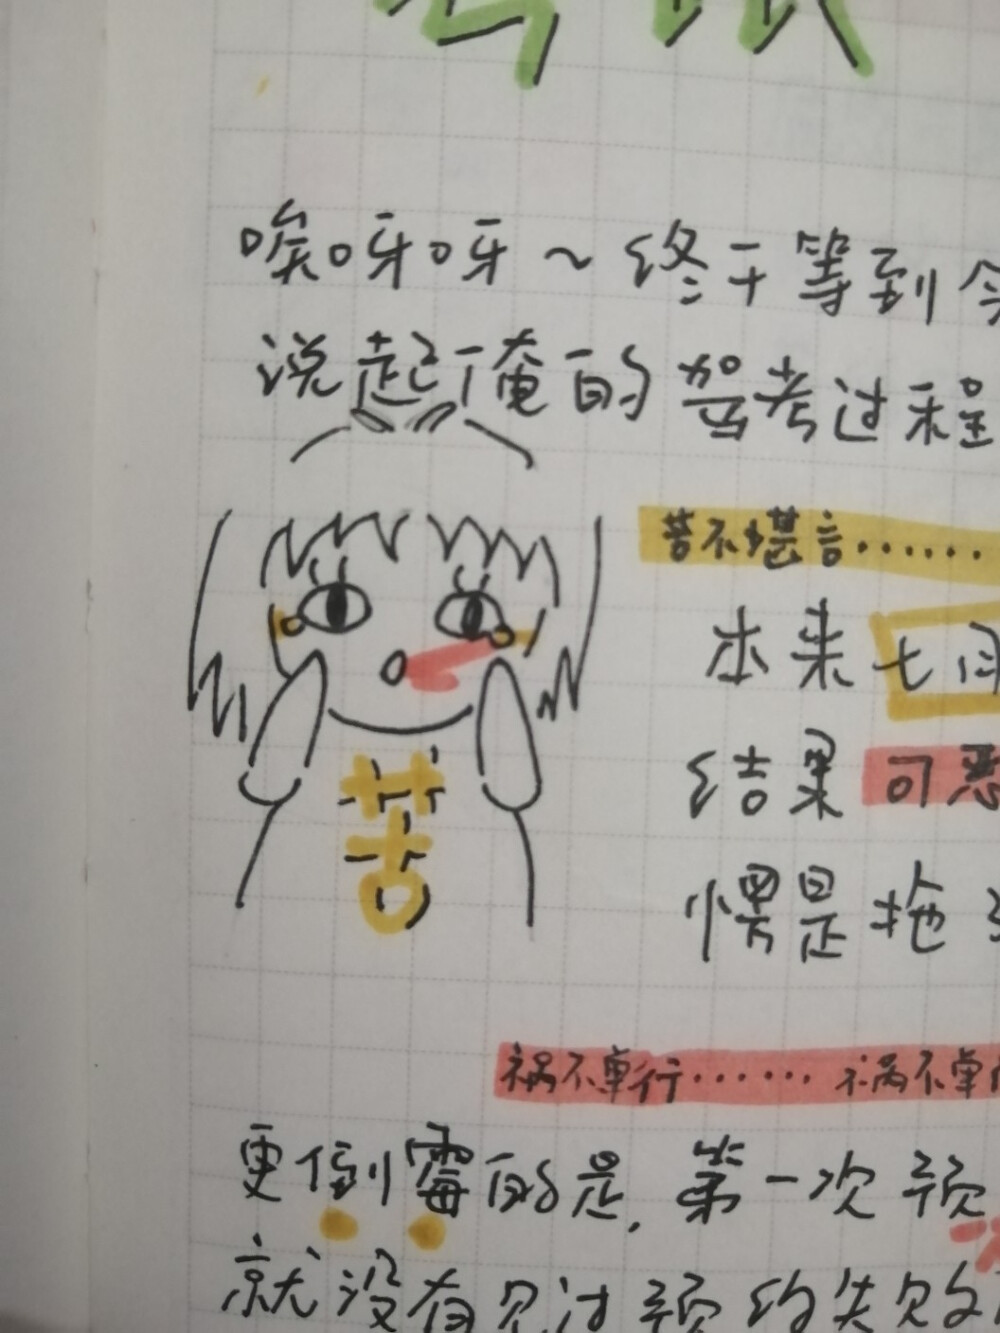 唉呀呀～终于等到今
说起俺的驾考过程
苦不堪言......
本来七月
结果可恶
愣是拖
苦
祸不单行...... 祸不单
更倒霉的是，第一次预
就没有见过预约失败